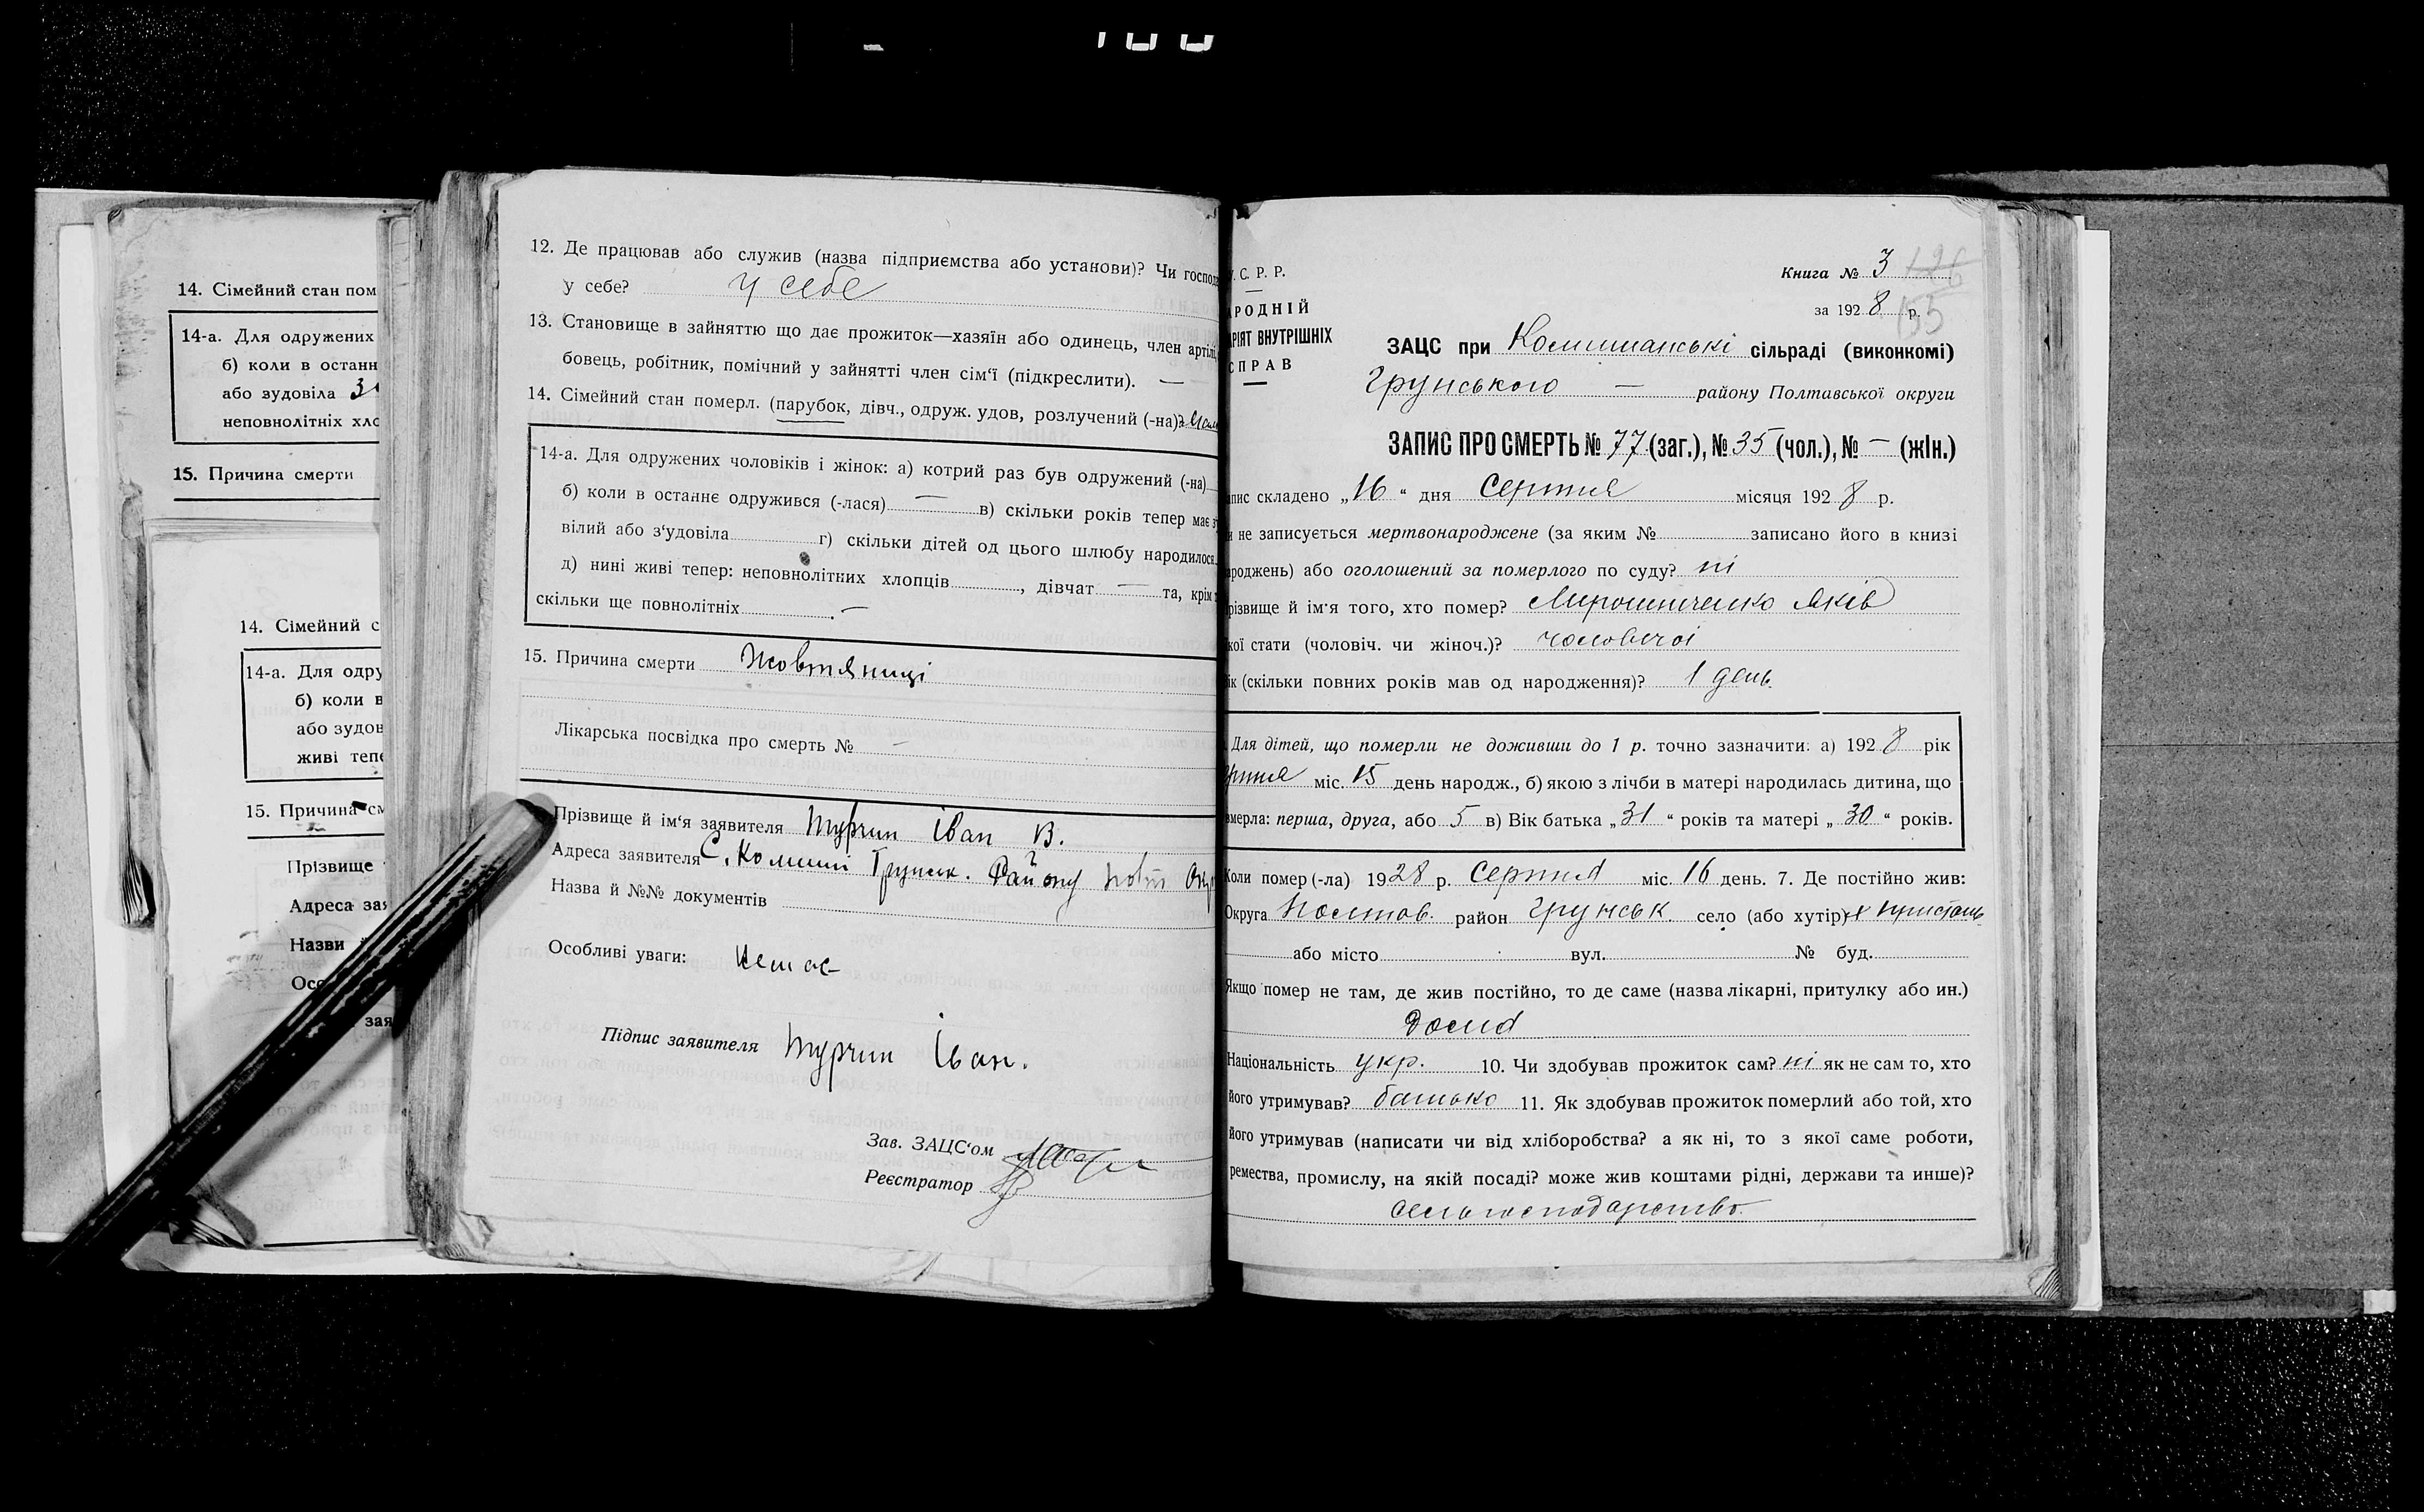 14. Сімейний стан пом
14-а. Для одружених
б) коли в останн
або зудовіла
неповнолітніх хло
15. Причина смерти
14. Сімейний с
14-а. Для одру
б) коли в
або зудов
живі тепе
15. Причина см
Прізвище
Адреса зая
Назви
Осо
зая
12. Де працював або служив (назва підприємства або установи)? Чи господ
у себе? у себе
13. Становище в зайняттю що дає прожиток—хазяїн або одинець, член артілі
бовець, робітник, помічний у зайнятті член сім'ї (підкреслити). —
14. Сімейний стан померл. (парубок, дівч., одруж. удов, розлучений (-на)?
14-а. Для одружених чоловіків і жінок: а) котрий раз був одружений (-на)
б) коли в останнє одружився (-лася) — в) скільки років тепер має з
вілий або з'удовіла г) скільки дітей од цього шлюбу народилося
д) нині живі тепер: неповнолітних хлопців , дівчат — та, крім
скільки ще повнолітніх —.
15. Причина смерти Жовтяниці
Лікарська посвідка про смерть № —
Прізвище й ім'я заявителя Турчин Іван В.
Адреса заявителя С. Комиші Грунськ. Району Полт Окр
Назва й №№ документів
Особливі уваги: Немає
Підпис заявителя Турчин Іван.
Зав. ЗАЦС'ом
Реєстратор
У.С.Р.Р.
АРОДНІЙ
АРІЯТ ВНУТРІШНІХ
СПРАВ
Книга № 3 126
за 1928 р. 155
ЗАЦС при Комишанські сільраді (виконкомі)
Грунського — району Полтавської округи
ЗАПИС ПРО СМЕРТЬ № 77 (заг.), № 35 (чол.), № — (жін.)
апис складено „16“ дня Серпня місяця 1928 р.
и не записується мертвонароджене (за яким № записано його в книзі
ароджень) або оголошений за померлого по суду? ні
різвище й ім'я того, хто помер? Мирошниченко Яків
кої стати (чоловіч. чи жіноч.)? чоловічоі
ік (скільки повних років мав од народження)? 1 день.
Для дітей, що померли не доживши до 1 р. точно зазначити: а) 1928 рік
рпня міс. 15 день народж., б) якою з лічби в матері народилась дитина, що
вмерла: перша, друга, або 5 в) Вік батька „31“ років та матері „30“ років.
Коли помер (-ла) 1928 р. Серпня міс. 16 день. 7. Де постійно жив:
Округа Полтав. район Грунськ. село (або хутір)
або місто вул. № буд.
Якщо помер не там, де жив постійно, то де саме (назва лікарні, притулку або ин.)
Дома
Національність укр. 10. Чи здобував прожиток сам? ні як не сам то, хто
його утримував? батько 11. Як здобував прожиток померлий або той, хто
його утримував (написати чи від хліборобства? а як ні, то з якої саме роботи,
ремества, промислу, на якій посаді? може жив коштами рідні, держави та инше)?
сельгосподарство.